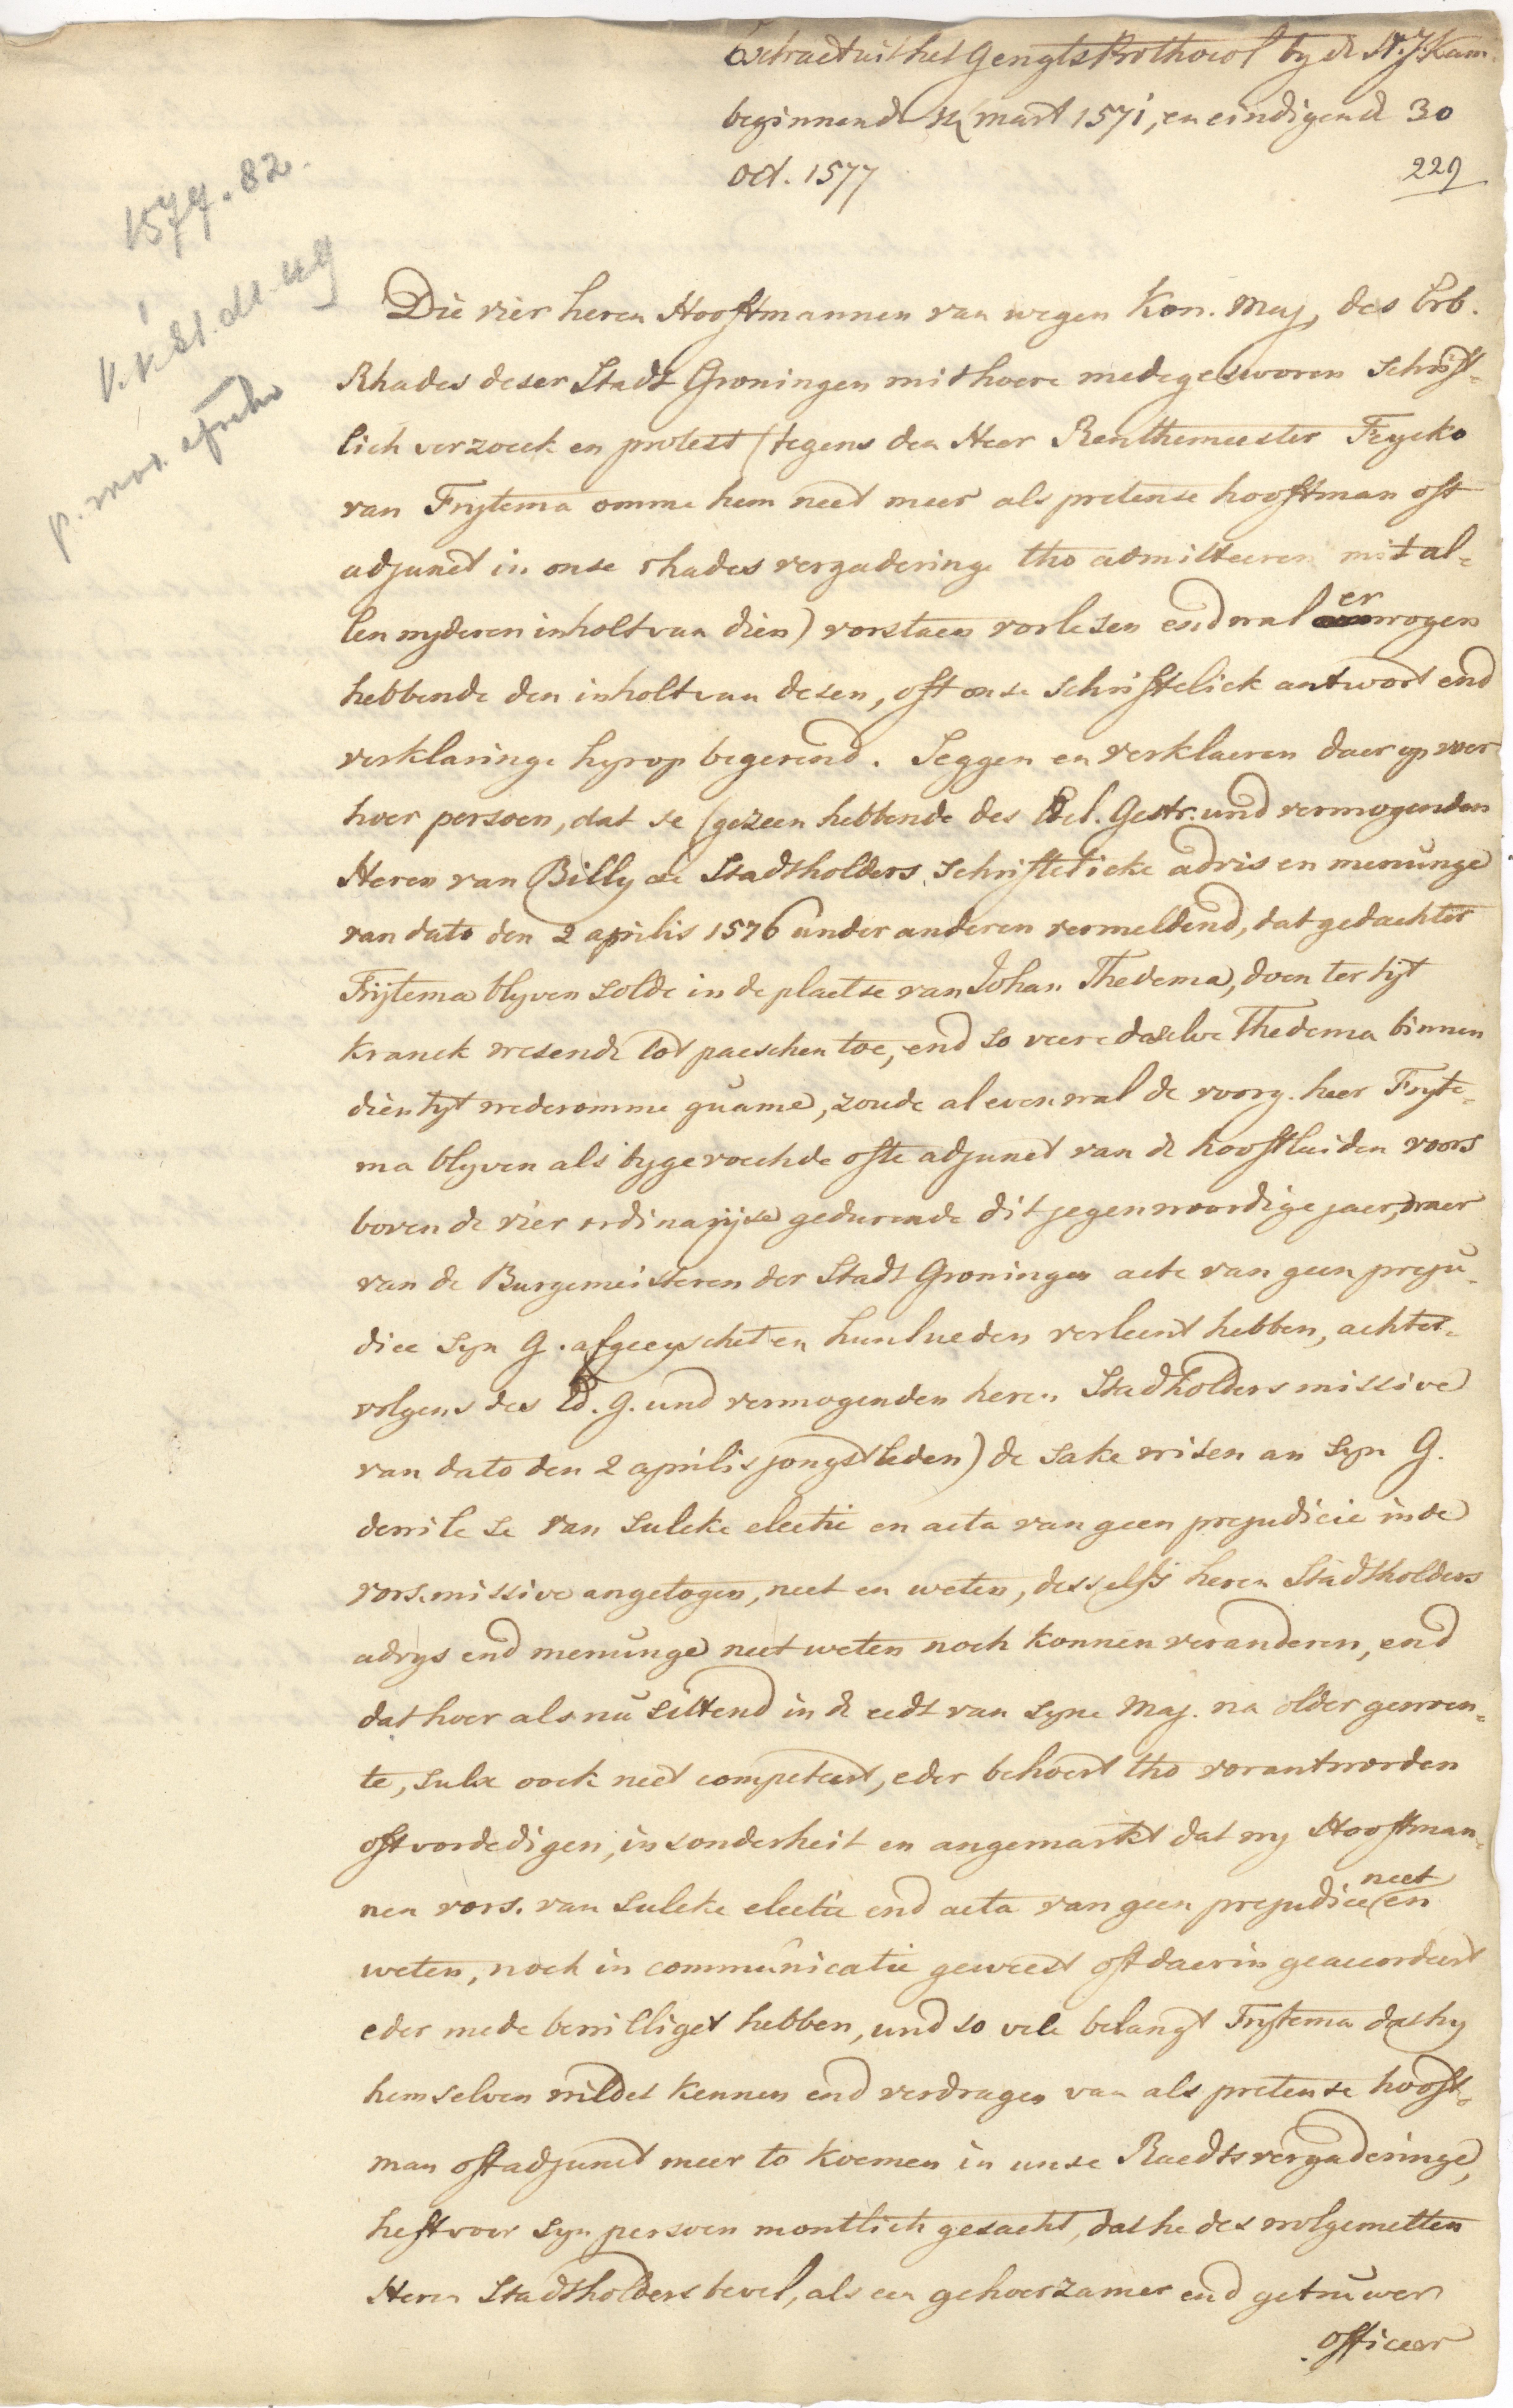 Extract uit het Gerigts Prothocol by de H. J. Kam.
beginnende 14 mart 1571, en eindigend 30
Oct. 1577
229
1579.82.
Die vier heren Hooftmannen van wegen Kon. Maj, des Erb.
Rhades deser Stadt Groningen mit hoere medegesworen Schrift-
lich verzoeck en protest (tegens den Heer Renthemeester Feycko
van Frytema omme hem neet meer als pretense hooftman oft
adjunct in onse rhades vergaderinge tho admitteeren mit al-
len wyderen inholt van dien) vorstaen vorlesen end wal er wogen
hebbende den inholt van desen, oft onse Schriftelick antwort end
verklaringe hyrop begerend. Seggen en verklaeren daer op voer
hoer persoen, dat se (gezeen hebbende des Edel. Gestr. und vermogenden
Heren van Billy de Stadtholders Schriftelicke advis en menunge
van dato den 2 aprilis 1576 under anderen vermeldend, dat gedachter
Frytema blyven solde in de plaetse van Johan Thedema, doen ter tyt
kranck wesende tot paeschen toe, end so veere deselve Thedema binnen
dien tyt wederomme quame, zoude al evenwal de voorg. heer Fryte-
ma blyven als bygevoechde ofte adjunct van de hooftluiden voors
boven de vier ordinarise gedurende dit jegenwoordige jaer, waer
van de Burgemeisteren der Stadt Groningen acte van geen preju-
dice Syn G. afgeeyschet en hunlueden verleent hebben, achter-
volgens des Ed. G. und vermogenden heren Stadtholders missive
van dato den 2 aprilis jongstleden) de sake wisen an Syn G.
dewile se van sulcke electie en acta van geen prejudicie in de
vors. missive angetogen, neet en weten, desselfs heren Stadtholders
advys end menunge neet weten noch konnen veranderen, end
dat hoer als nu sittend in de eedt van Syne Maj. na older gewon-
te, sulx oock neet competeert, eder behoert tho verantworden
oft vordedigen, insonderheit en angemarkt dat wy Hooftman-
nen vors. van sulcke electie end acta van geen prejudice neet en
weten, noch in communicatie geweest oft daerin geaccordeert
eder mede bewilliget hebben, und so vele belangt Frytema dat hy
hem selven wildet kennen end verdragen van als pretense hooft-
man oft adjunct meer to koemen in unse Raedts vergaderinge,
heft voer Syn persoen montlich gesacht, dat he des wolgemelten
Heren Stadtholders bevel, als een gehoerzamer end getruwer
officeer